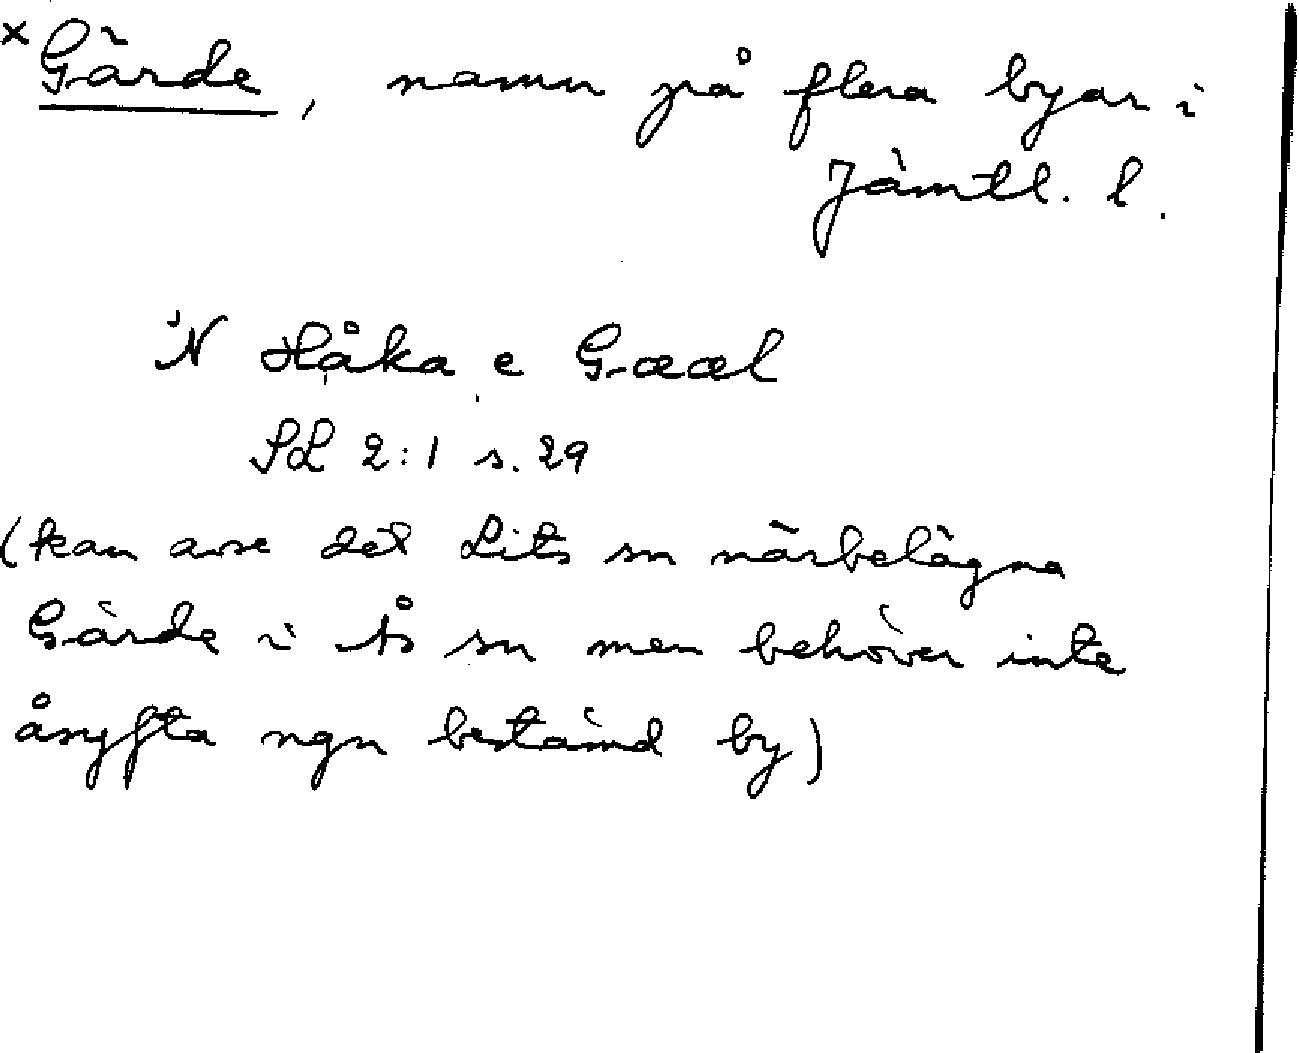 × Gärde, namn på flera byar i
Jämtl. l.
'N Håka e Gææl
SL 2:1 s. 29
(kan avse det Lits sn närbelägna
Gärde i Ås sn men behöver inte
åsyfta ngn bestämd by)